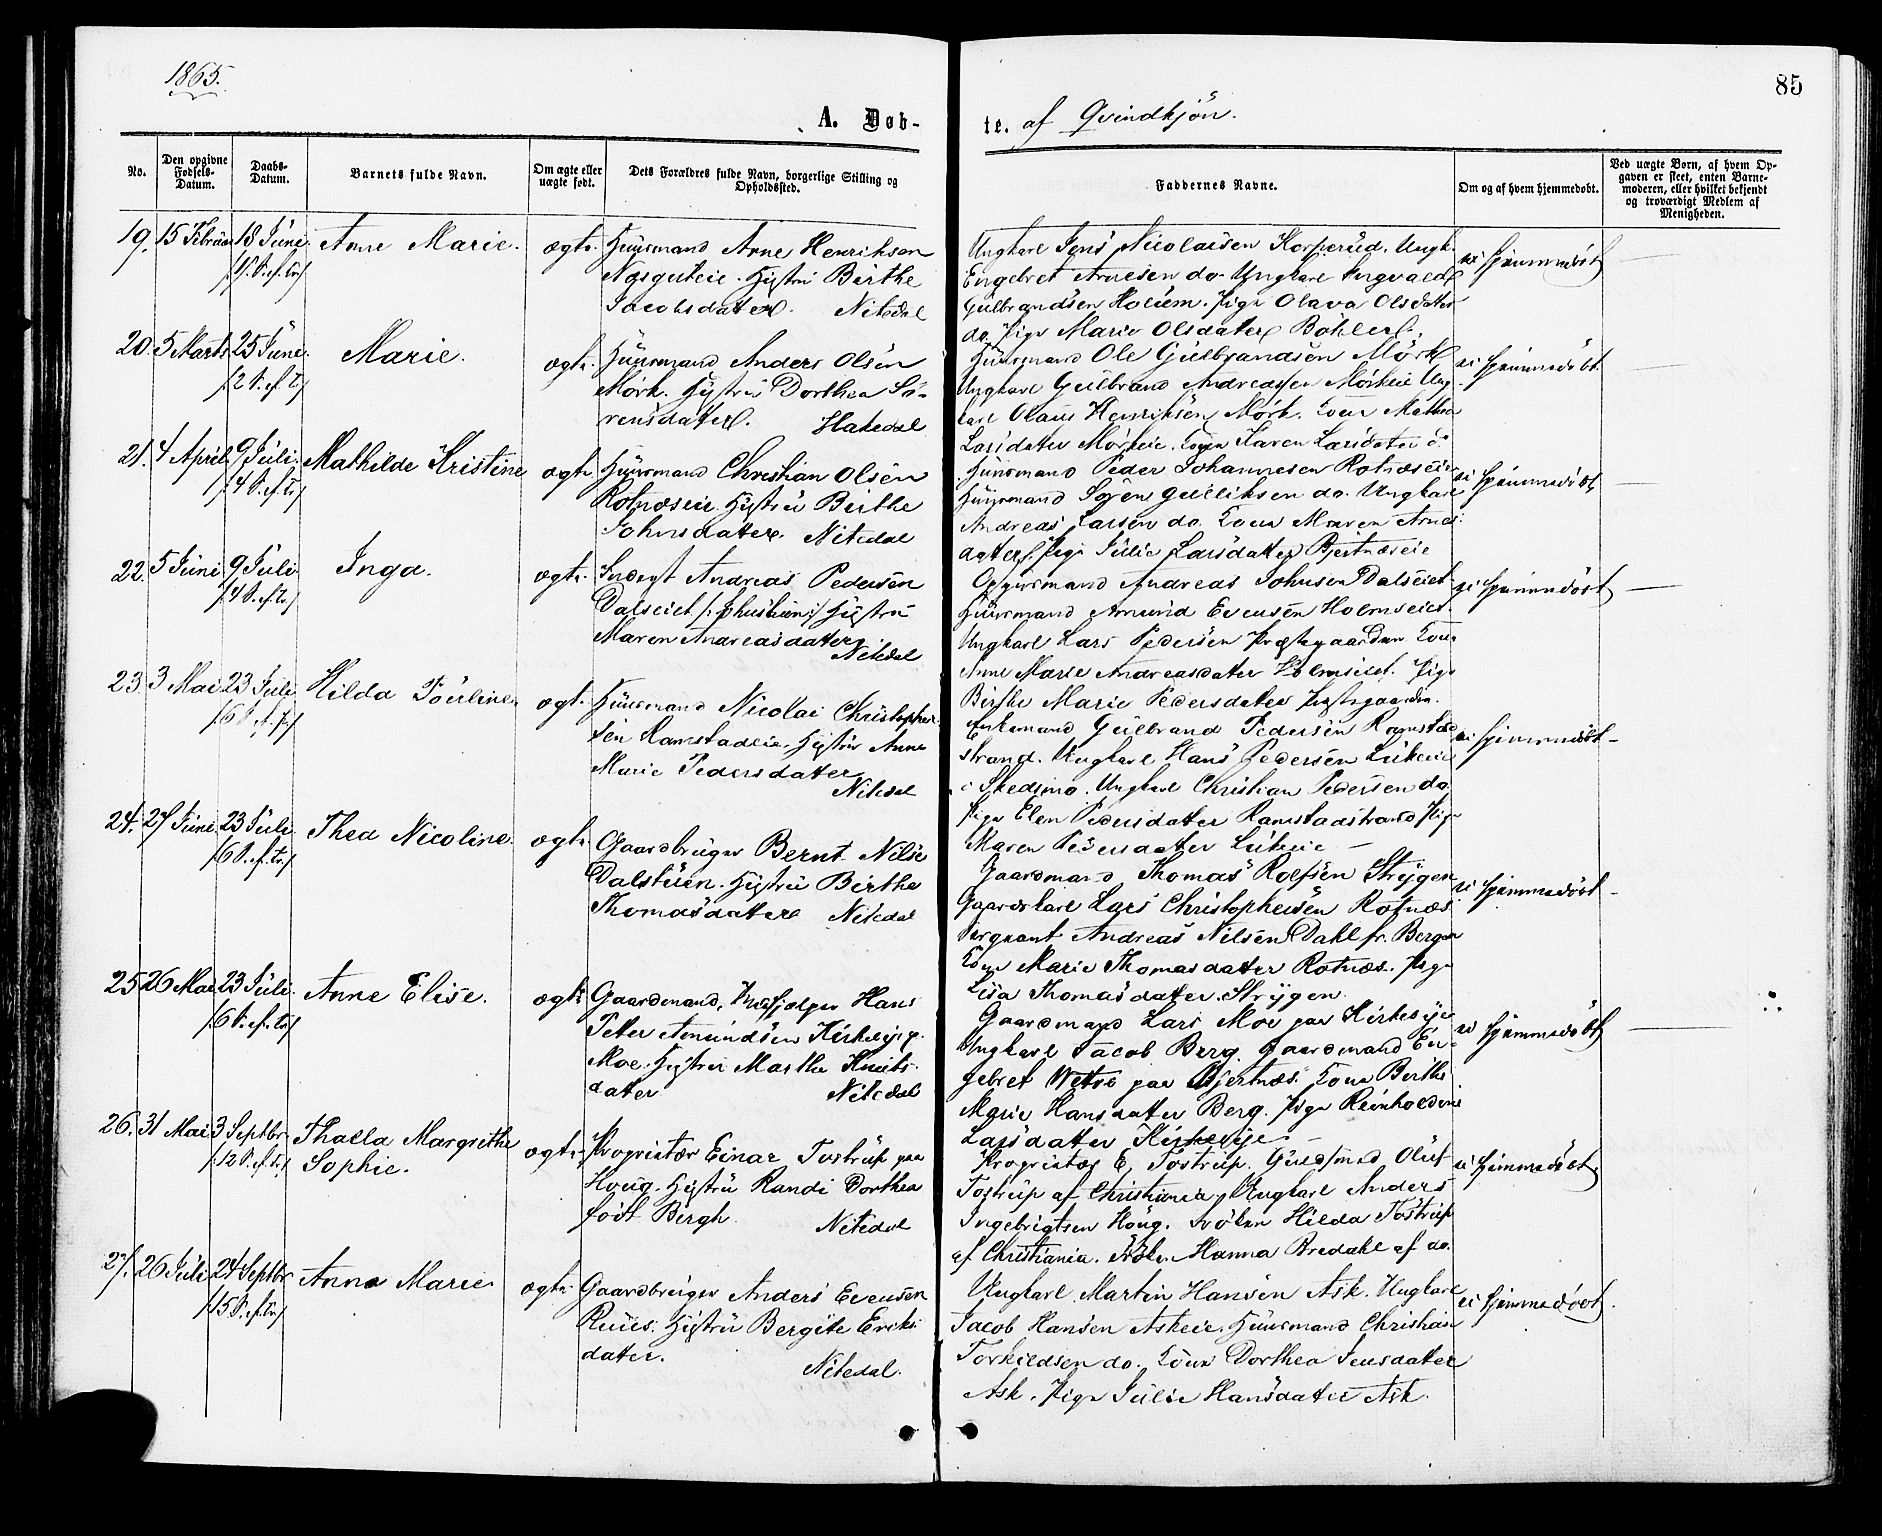 1865.
85
A. Døb-
te. af Qvindkjön.
No.
Den opgivne Fødsels-Datum.
Daabs-Datum.
Barnets fulde Navn.
Om ægte eller uægte født.
Dets Forældres fulde Navn, borgerlige Stilling og Opholdssted.
Faddernes Navne.
Om og af hvem hjemmedøbt.
Ved uægte Børn, af hvem Opgaven er skeet, enten Barnemoderen, eller hvilket bekjendt og troværdigt Medlem af Menigheden.
19. 15 Februar 18 Juni Anne Marie. ægte. Huusmand Arne Henriksen
Hustru Birthe
Jacobsdatter. Nitedal
Ungkarl Jens Nicolaisen Korperud. Ungk.
Engebret Arnesen do. Ungkarl Ingvald
Gulbrandsen Holum. Pige Olava Olsdatter
do. Pige Marie Olsdatter Böhler.
ei hjemmedöbt
20. 5 Marts 25 June. Marie. ægte. Huusmand Anders Olsen
/2 S. ef. Tr./
Mørk. Hystru Dorthea Sö-
rensdatter. Hakedal
Huusmand Ole Gulbrandsen Mörk
Ungkarl Gulbrand Andreassen Mörkeie Ung-
karl Olaus Henriksen Mörk. Kone Mathea
Larsdatter Mörkeie. Karen Larsdatter
ei hjemmedöbt.
21. 4 April 9 Juli. Mathilde Kristine ægte Huusmand Christian Olsen
/4 S. ef. Tr./
Rotnæseie. Hustru Birthe
Johnsdatter. Nitedal
Huusmand Peder Johannesen Rotnæseie
Huusmand Sören Gulliksen do. Ungkarl
Andreas Larsen do. Kone Maren Arnes-
datter. Pige Julie Larsdatter Bjertnæseie
ei hjemmedöbt
22. 5 Juni 9 Juli. Inga. ægte. Inderst Andreas Pedersen
/4 S. ef. Tr./
Dalseiet Hystru
Maren Andreasdatter.
Nitedal
Andreas Johnsen Dalseiet
Huusmand Amund Evensen Holmseiet.
Ungkarl Lars Pedersen Præstegaarden Kone
Anne Marie Andreasdatter Holmseiet. Pige
Birthe Marie Pedersdatter Præstegaarden.
ei hjemmedöbt
23. 3 Mai 23 Juli Hilda Pouline. ægte. Huusmand Nicolai Christopher-
sen Ramstadeie. Hystru Anne
Marie Pedersdatter
Nitedal
Enkemand Gulbrand Pedersen Ramstad-
strand. Ungkarl Hans Pedersen Lükeeie
i Skedsmo. Ungkarl Christian Pedersen do.
Pige Elen Pedersdatter Ramstadstrand Pige
Maren Pedersdatter Lükeeie
ei hjemmedöbt
24. 27 Juni 23 Juli. Thea Nicoline. ægte. Gaardbruger Bernt Nilse
/6 S. ef. Tr./
Dalstuen. Hystru Birthe
Thomasdatter Nitedal
Gaardmand Thomas Rolfsen Strygen
Gaardkarl Lars Christophersen Rotnæs
Sergeant Andreas Nilsen Dahl fr. Bergen
Kone Marie Thomasdatter Rotnæs. Pige
Lisa Thomasdatter Strygen.
ei hjemmedöbt
25 26 Mai 23 Juli. Anne Elise. ægte Gaardmand, Hans
/6 S. ef. Tr./
Peter Amundsen Kirkeby p.
Moe. Hystru Marthe Knuts-
datter Nitedal
Gaardmand Lars Moe paa Kirkebye
Ungkarl Jacob Berg. Gaardmand En-
gebret Wetre paa Bjertnæs. Kone Berthe
Marie Hansdatter Berg. Pige Reinholdine
Larsdatter Kirkebye
ei hjemmedöbt
26. 31 Mai 3 Septbr. Thalla Margrethe
/12 S. ef. Tr./ Sophie.
ægte. Proprietær Einar Tostrup paa
Houg. Hystru Randi Dorthea
född Bergh. Nitedal
Proprietær E. Tostrup. Guldsmed Oluf
Tostrup af Christiania. Ungkarl Anders
Ingebrigtsen Houg. Fröken Hilda Tostrup
af Christiania. Fröken Hanna Bredahl af do.
ei hjemmedöbt
27. 26 Juli 24 Septbr. Anna Marie ægte. Gaardbruger Anders Evensen
/15 S. ef. Tr./
Ruus. Hystru Bergite Erks-
datter. Nitedal.
Ungkarl Martin Hansen Ask. Ungkarl
Jacob Hansen Askeie. Huusmand Christian
Torkildsen do. Kone Dorthea Jensdatter
Ask. Pige Julie Hansdatter Ask.
ei hjemmedöbt.